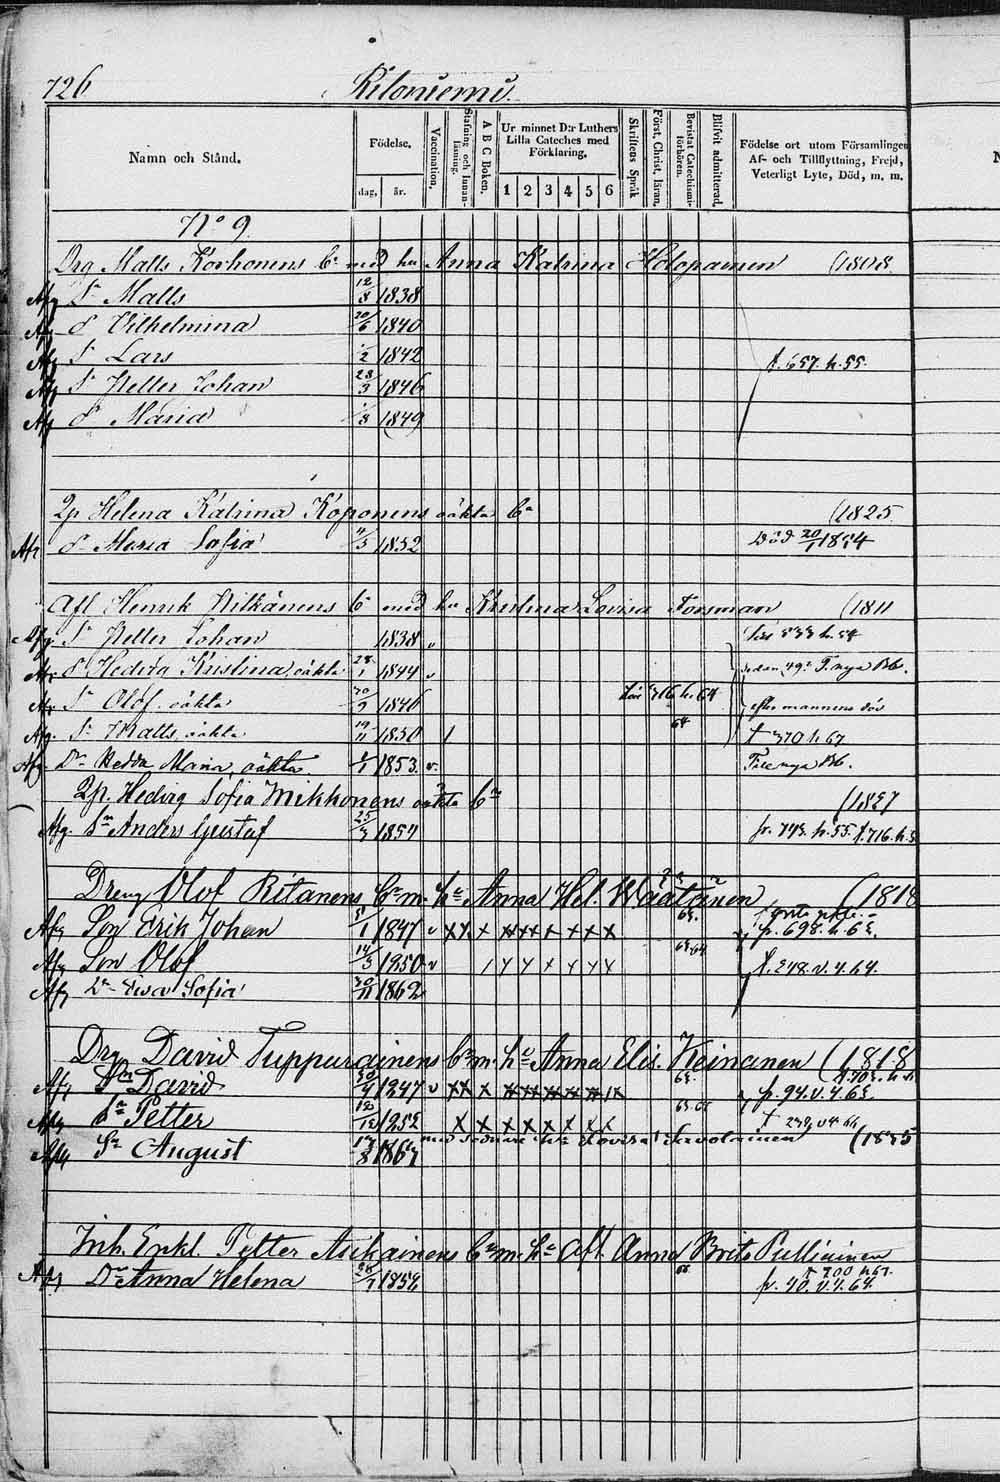 726 Kiloniemi.
Namn och Stånd. Födelse. dag. år. Vaccination. Stafning och Innanläsning. A B C Boken. Ur minnet D:r Luthers Lilla Cateches med Förklaring. 1 2 3 4 5 6 Skriftens Språk Först. Christ. läran. Bevistat Catechismiförhören. Blifvit admitterad. Födelse ort utom Församlingen Af- och Tillflyttning, Frejd, Veterligt Lyte, Död, m. m.
No 9.
Drg Matts Korhonens bn med hu Anna Katrina Holopainen (1808
Afg S. Matts 12/8 1838
Afg d. Vilhelmina 20/6 1840
Afg S. Lars /2 1842 f. 657. h. 55.
Afg S. Petter Johan 28/3 1846
Afg d. Maria 1/8 1849
Qp Helena Katrina Koponens oäkta bn (1825
Afg d. Maria Sofia 11/5 1852 Död 20/1 1854
Afl Henrik Pitkänens bn med hu Kristina Lovisa Forsman (1811
Afg. S. Petter Johan 1838
Afg d. Hedvig Kristina, oäkta 28/1 1844 sedan 49 F. nya Bb.
Afg S. Olof. oäkta 30/9 1846 716 h. 64 efter mannens död
Afg. S. Matts, oäkta 19/11 1850 1 64 † 370 h 67
Afg Dr Hedda Maria, oäkta 1853. v. nya Bb.
Qp. Hedvig Sofia Mikkonens oäkta bn (1827
Afg. Sn Anders Gustaf 25/3 1854 fr. 743. h. 55. f. 716. h.
Dreng Olof Ritanens bn m. hu Anna Hel. Väätäinen (1818
Afg Son Erik Johan 1/1 1847 v x x x x x x x x x 63. fr. 698. h. 63.
Afg Son Olof 14/3 1850 v 1 x x x x x x 63 64 f. 248. v. 4. 64.
Afg Dr Eva Sofia 30/11 1862
Drg David Tuppurainens bn m. hu Anna Elis. Keinanen (1818
Afg Sn David 30/4 1847 v x x x x x x x x x 63. fr. 94. v. 4. 63.
Afg Sn Petter 18/12 1852 x x x x x x x x † 238 v 4. 64
med hu Lovisa (1835
Afg Sn August 17/8 1863
Inh. Enkl. Petter Asikainens bn m. hu afl. Anna Brita Pulliainen
Afg Dr Anna Helena 28/7 1854 f. 700 h 67.
fr. 40. v. 4. 64.